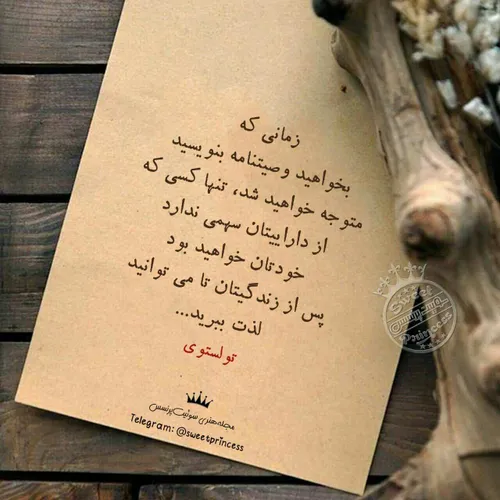 زمانی که
بخواهید وصیتنامه بنویسید
متوجه خواهید شد، تنها کسی که
از داراییتان سهمی ندارد
خودتان خواهید بود
پس از زندگیتان تا می توانید
لذت ببرید...
تولستوی
مجله هنری سوئیت پرنسس
Telegram: @sweetprincess
Sweet
سوئیت پرنسس
Princess